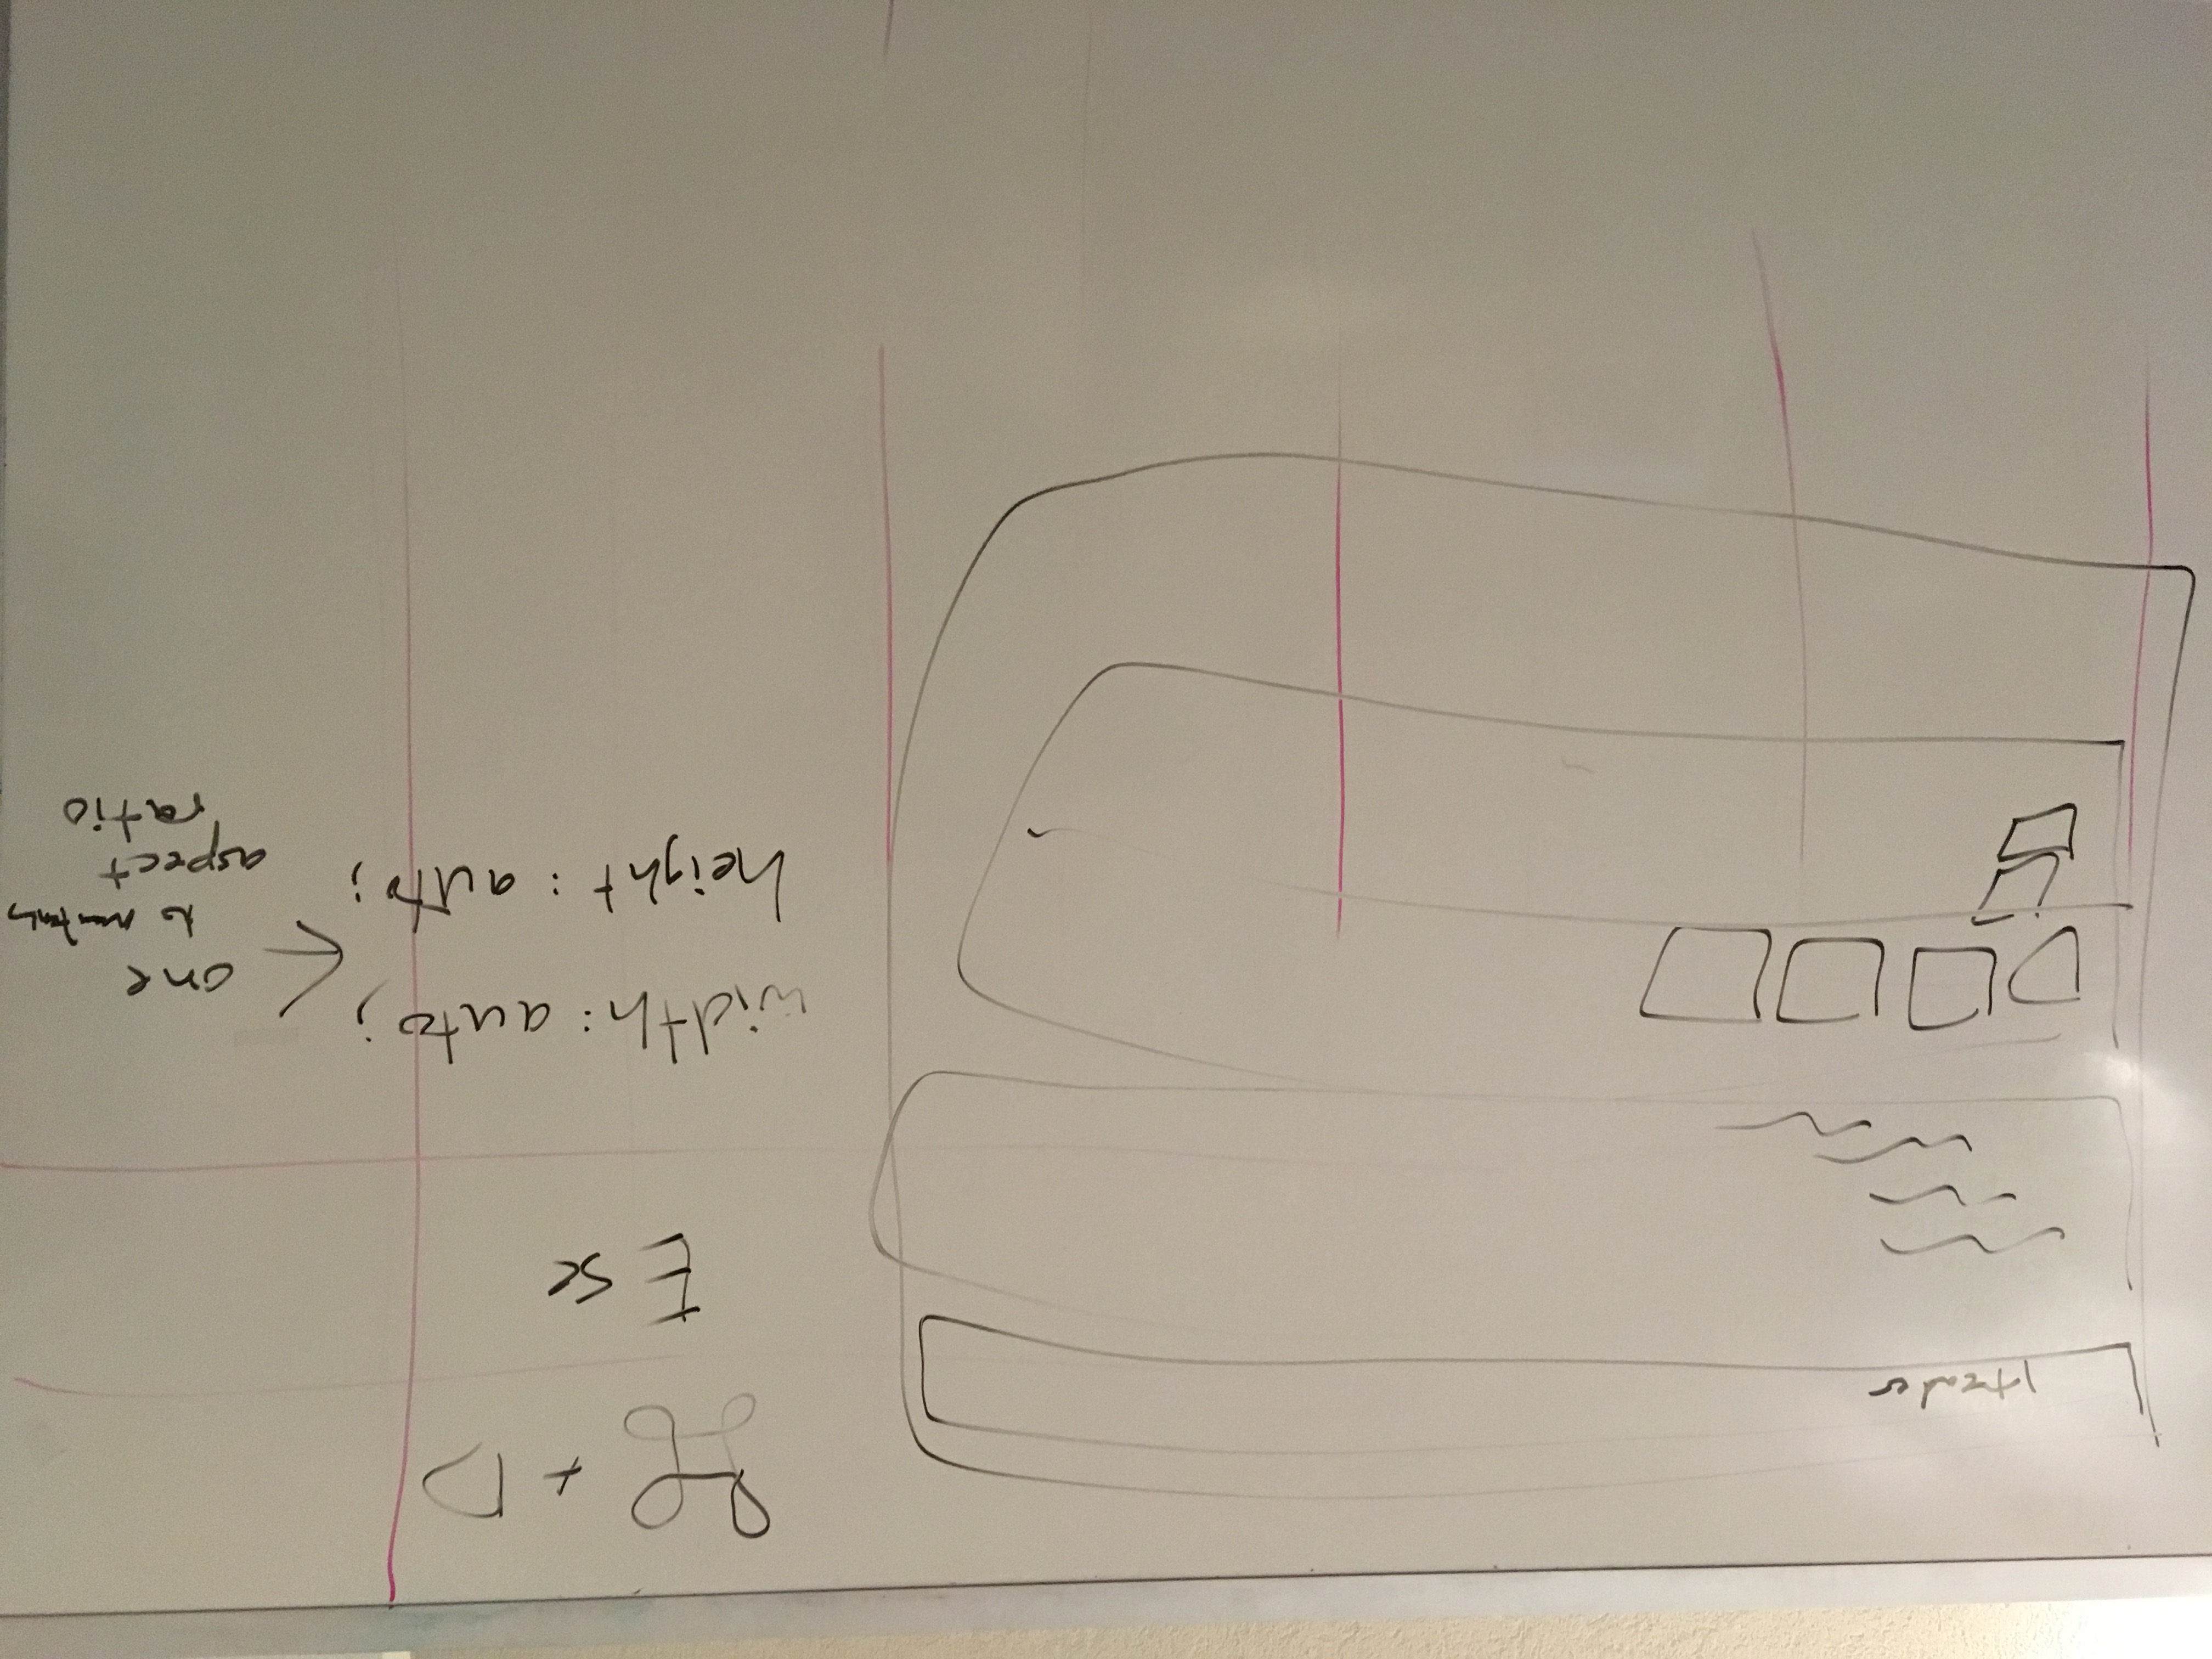 Header
⌘ + D
Esc
width: auto;
height: auto;
one
to maintain
aspect
ratio